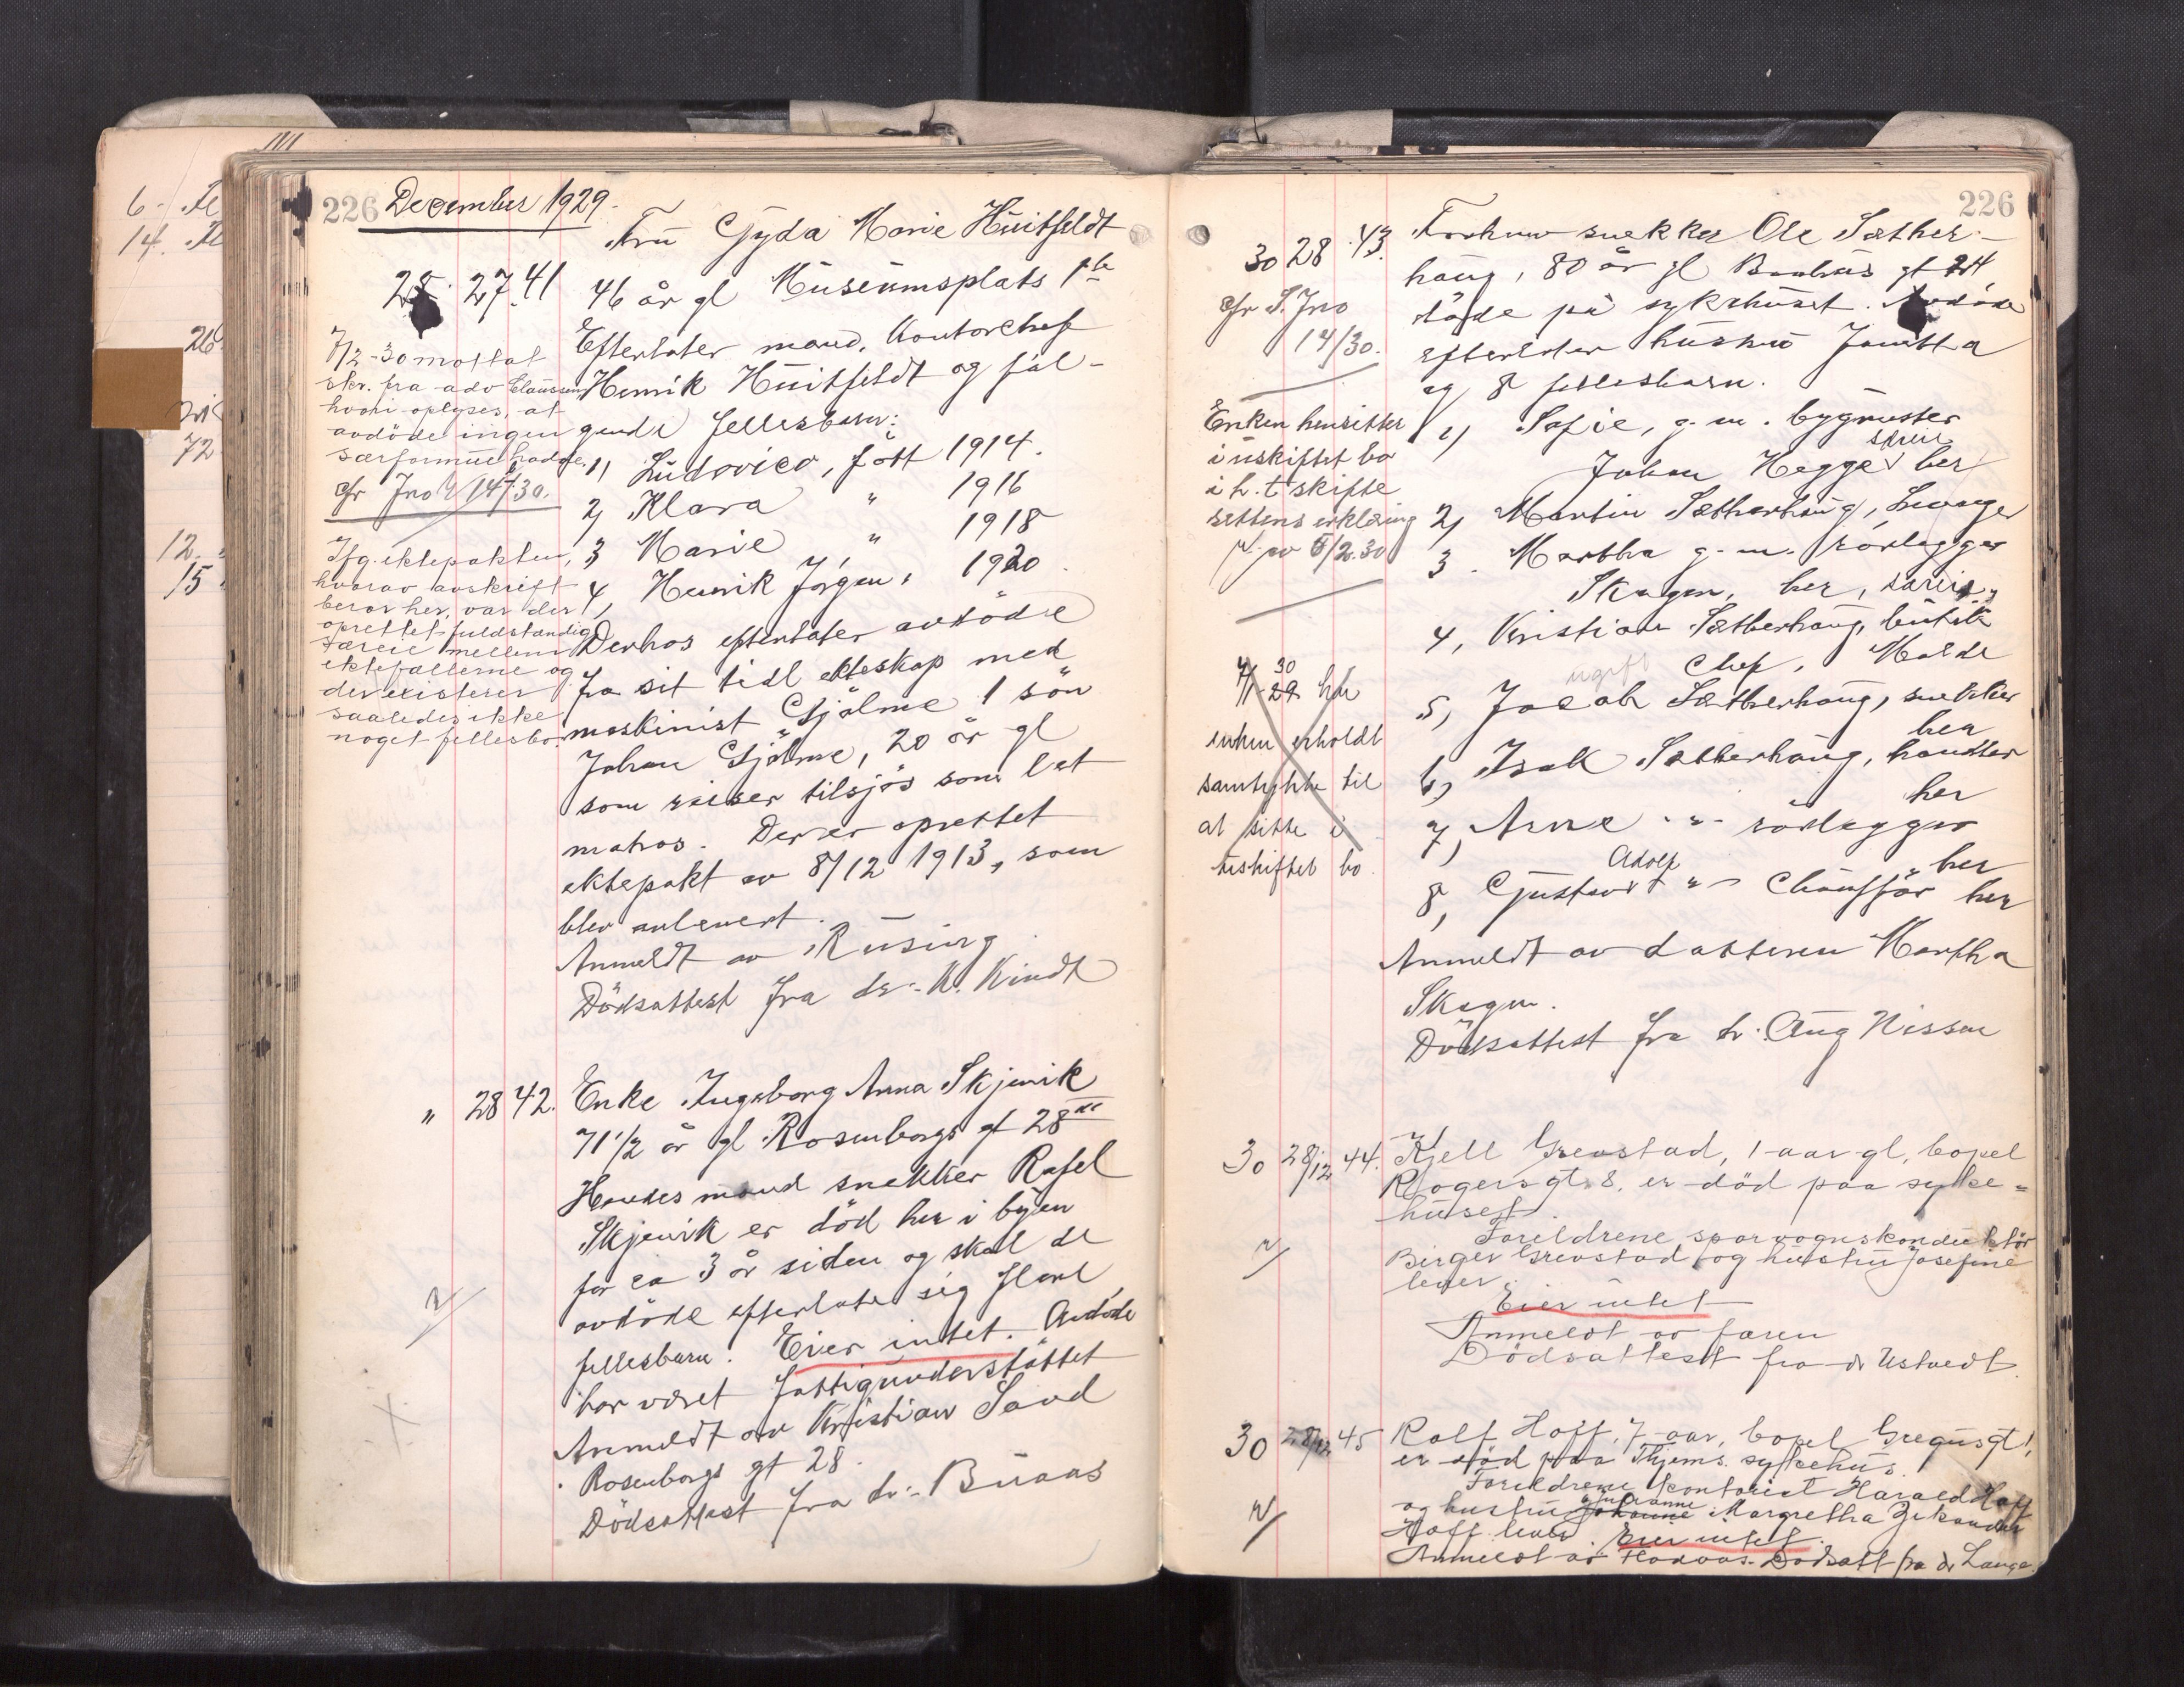 6
14.
26
72
12.
15
226 December 1929.
28. 27. 41
Fru Gyda Marie Huitfeldt
46 år gl Museumsplats 1 b
Efterlater mand, kontorchef
Henrik Huitfeldt og føl-
gende fellesbarn:
1, Ludovico, født 1914.
2, Klara " 1916
3 Marie " 1918
4, Henrik Jørgen, 1920.
Derhos efterlater avdöde
fra sit tidl ekteskap med
maskinist Gjölme 1 sön
Johan Gjölme, 20 år gl
som reiser tilsjös som let
matros. Der er oprettet
ektepakt av 8/12 1913, som
blev anlevert.
Anmeldt av Rusing
Dödsattest fra dr. K. Kindt
7/2-30 mottat
skr. fra adv Claussen
hvori oplyses, at
avdöde ingen
særformue hadde.
cfr Jno 147/30.
Ifg. ektepakten,
hvorav avskrift
beror her, var der
oprettet fuldstændig
særeie mellem
ektefællerne og
der existerer
saaledes ikke
noget fellesbo.
" 28 42. Enke Ingeborg Anna Skjervik
71 1/2 år gl Rosenborgs gt 28
Hendes mand snekker Rafel
Skjervik er död her i byen
for ca 3 år siden og skal de
avdöde efterlate sig flere
fellesbarn. Eier intet. Avdöde
har været fattigunderstöttet
Anmeldt av Kristian Sand
Rosenborgs gt 28.
Dödsattest fra dr. Buaas
226
30 28 43. Forhenv snekker Ole Sæther-
haug, 80 år gl Bakhus gt 24
döde på sykehuset. Avdöde
efterlater hustru Janetta
og 8 fellesbarn.
1, Sofie, g. m. bygmester
Johan Hegge særeie her
2, Martin Sætherhaug, Levanger
3. Martha g. m. rörlegger
Skagen, her, særeie,
4, Kristian Sætherhaug, butik
chef, Molde
ugift
5, Jacob Sætherhaug, snekker
her
6, Isak Sætherhaug, handler
her
7, Arne -"- rörlegger
her
8, Gustav Adolf -"- Chaufför her
Anmeldt av datteren Martha
Skagen.
Dödsattest fra dr. Aug Nissen
cfr S. Jno
14/30.
Enken hensitter
i uskiftet bo
i h. t skifte
rettens erklæring
av 5/2.30
4/1-29 30 har
enken erholdt
samtykke til
at sitte i
uskiftet bo.
30 28/12 44. Kjell Grevstad, 1 aar gl, bopel
Rogersgt. 8. er död paa syke-
huset.
Foreldrene sporvognskonduktör
Birger Grevstad og hustru Josefine
lever.
Eier intet
Anmeldt av faren
Dödsattest fra dr Ustvedt.
30 28/12 45 Rolf Hoff, 7 aar, bopel Gregusgt 1,
er död paa Thjems sykehus.
Foreldrene kontorist Harald Hoff
og hustru Johanne Julianne Margretha
Hoff lever. Eier intet.
Anmeldt av Dödsatt fra dr Lange.